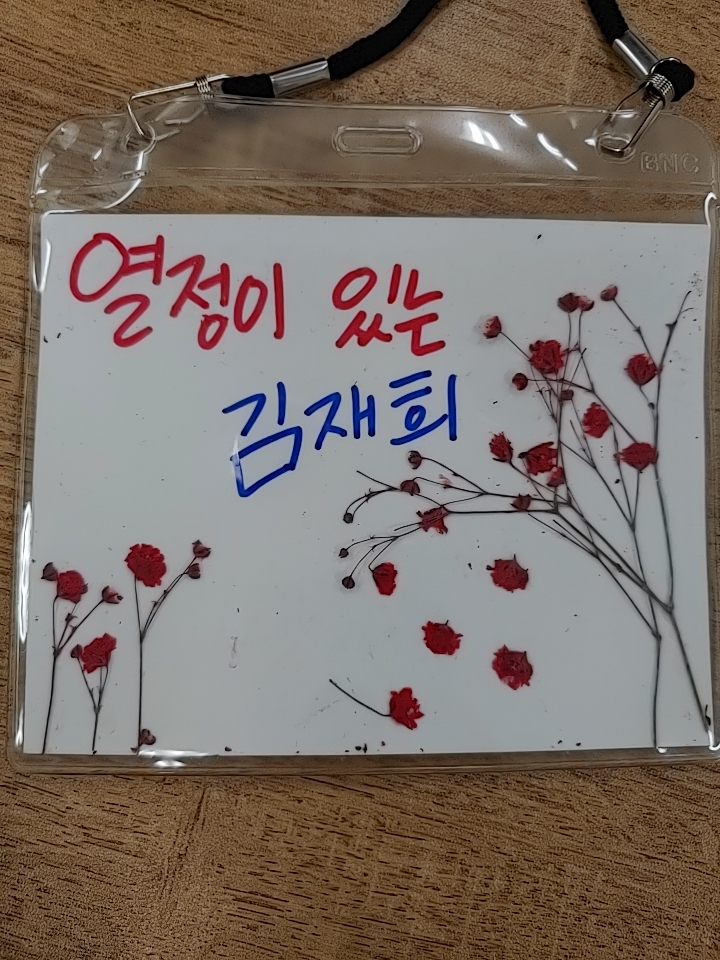 BNC
열정이 있는
김재희